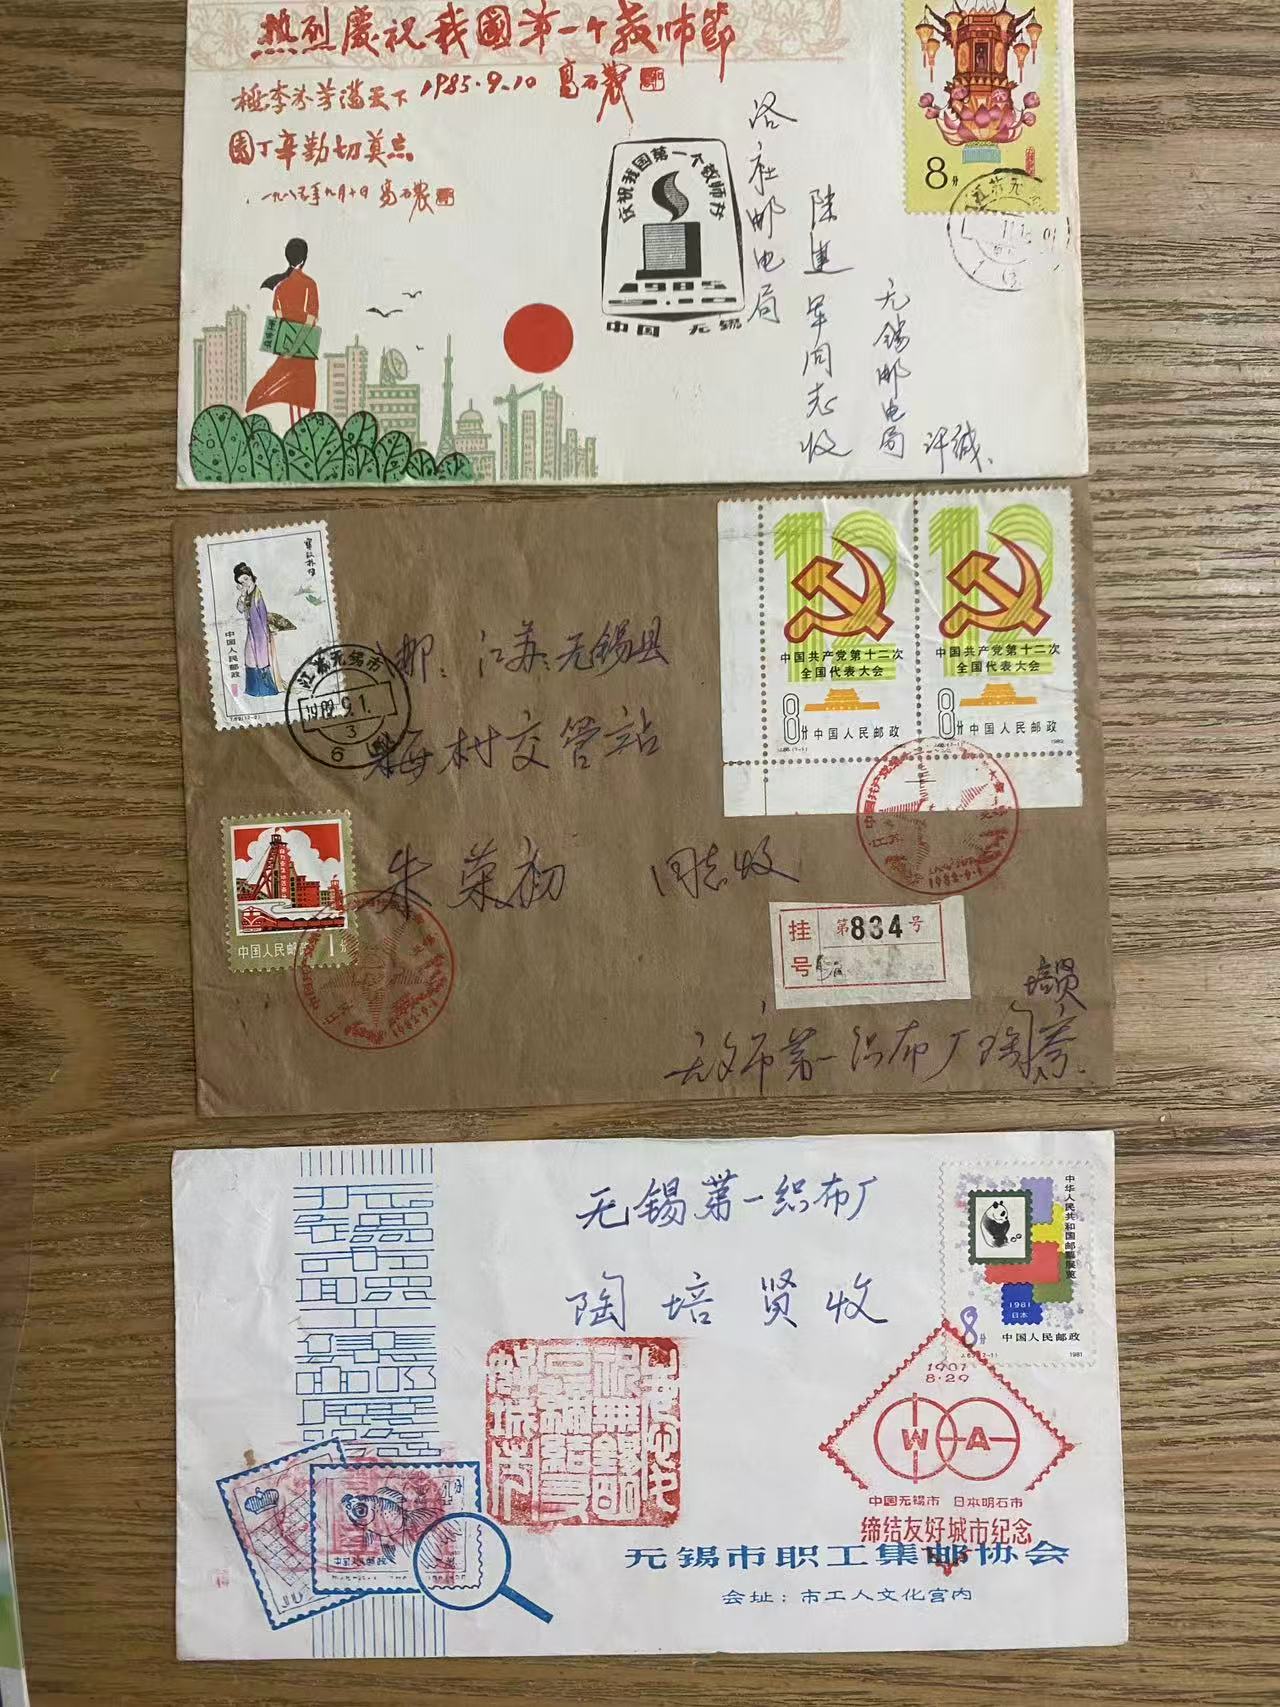 热烈慶祝我國第一个教师節
桃李芬芳滿天下 1985.9.10 高石農
園丁辛勤切莫忘
一九八五年九月十日 高石農
庆祝我国第一个教师节
1985
中国 无锡
8分
洛社邮电局
陆建军同志收
无锡邮电局
许斌
中国人民邮政
江苏无锡市
1982.9.1.
3
6
邮：江苏：无锡县
梅村交管站
朱荣初 同志收
12
中国共产党第十二次
全国代表大会
8分 中国人民邮政
J.86.(1-1)
12
中国共产党第十二次
全国代表大会
8分 中国人民邮政
J.86.(1-1) 1982
1982.9.1
中国人民邮政 1分
挂号 第834号
无锡市第一织布厂陶
培贤
无锡第一织布厂
陶培贤收
中华人民共和国邮票展览
1981
日本
8分 中国人民邮政
1981
1981
8·29
W A
中国无锡市 日本明石市
缔结友好城市纪念
中国人民邮政
无锡市职工集邮协会
会址：市工人文化宫内